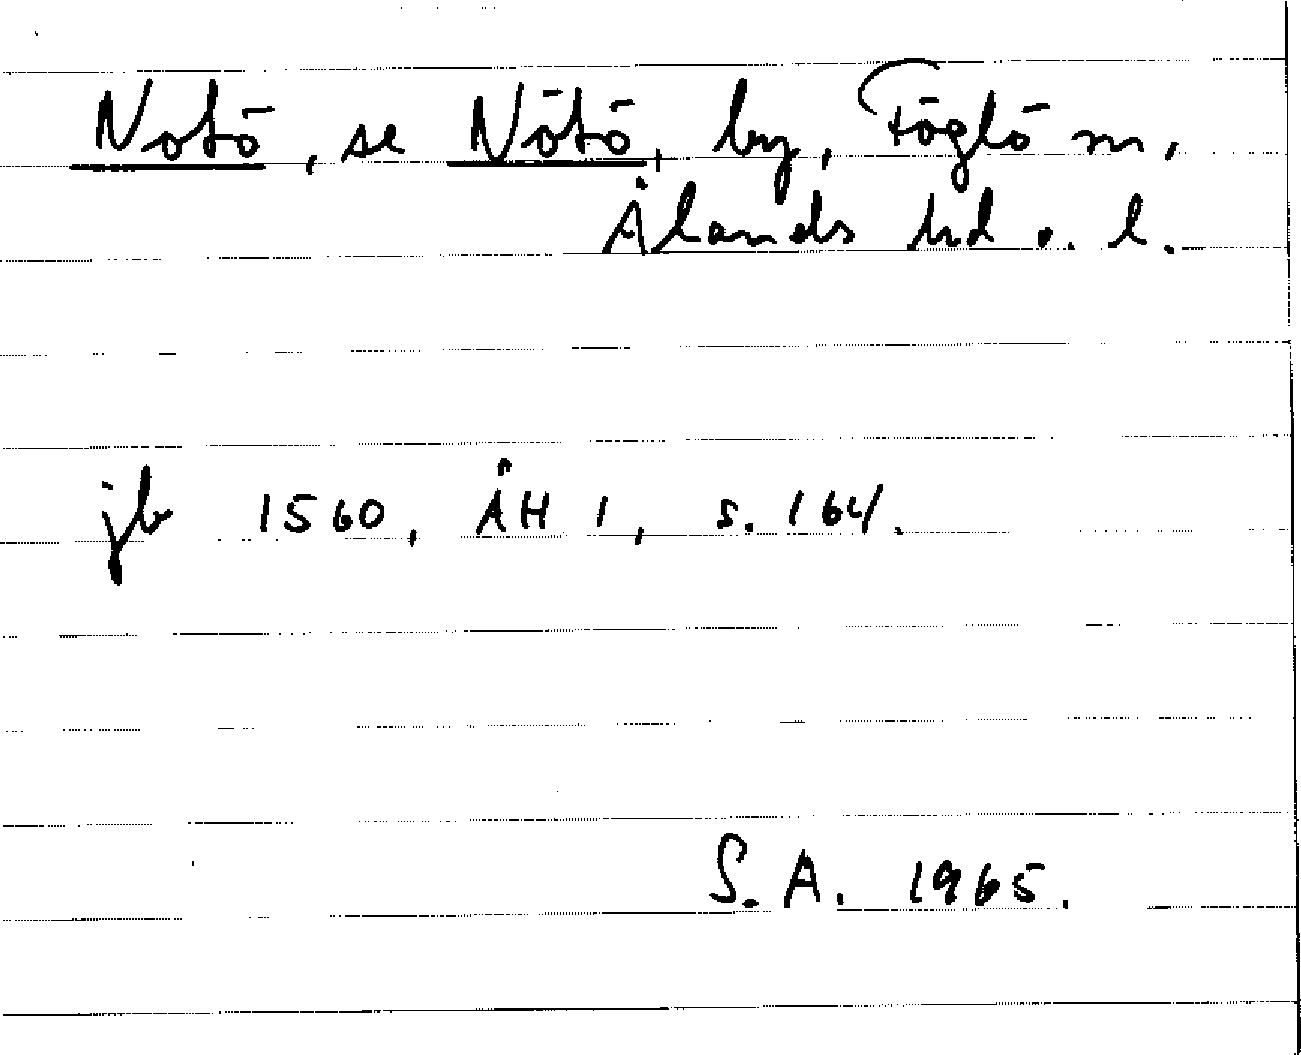 Notö, se Nötö, by, Föglö sn,
Ålands hd o. l.
jb 1560, ÅH 1, s. 164.
S. A. 1965.